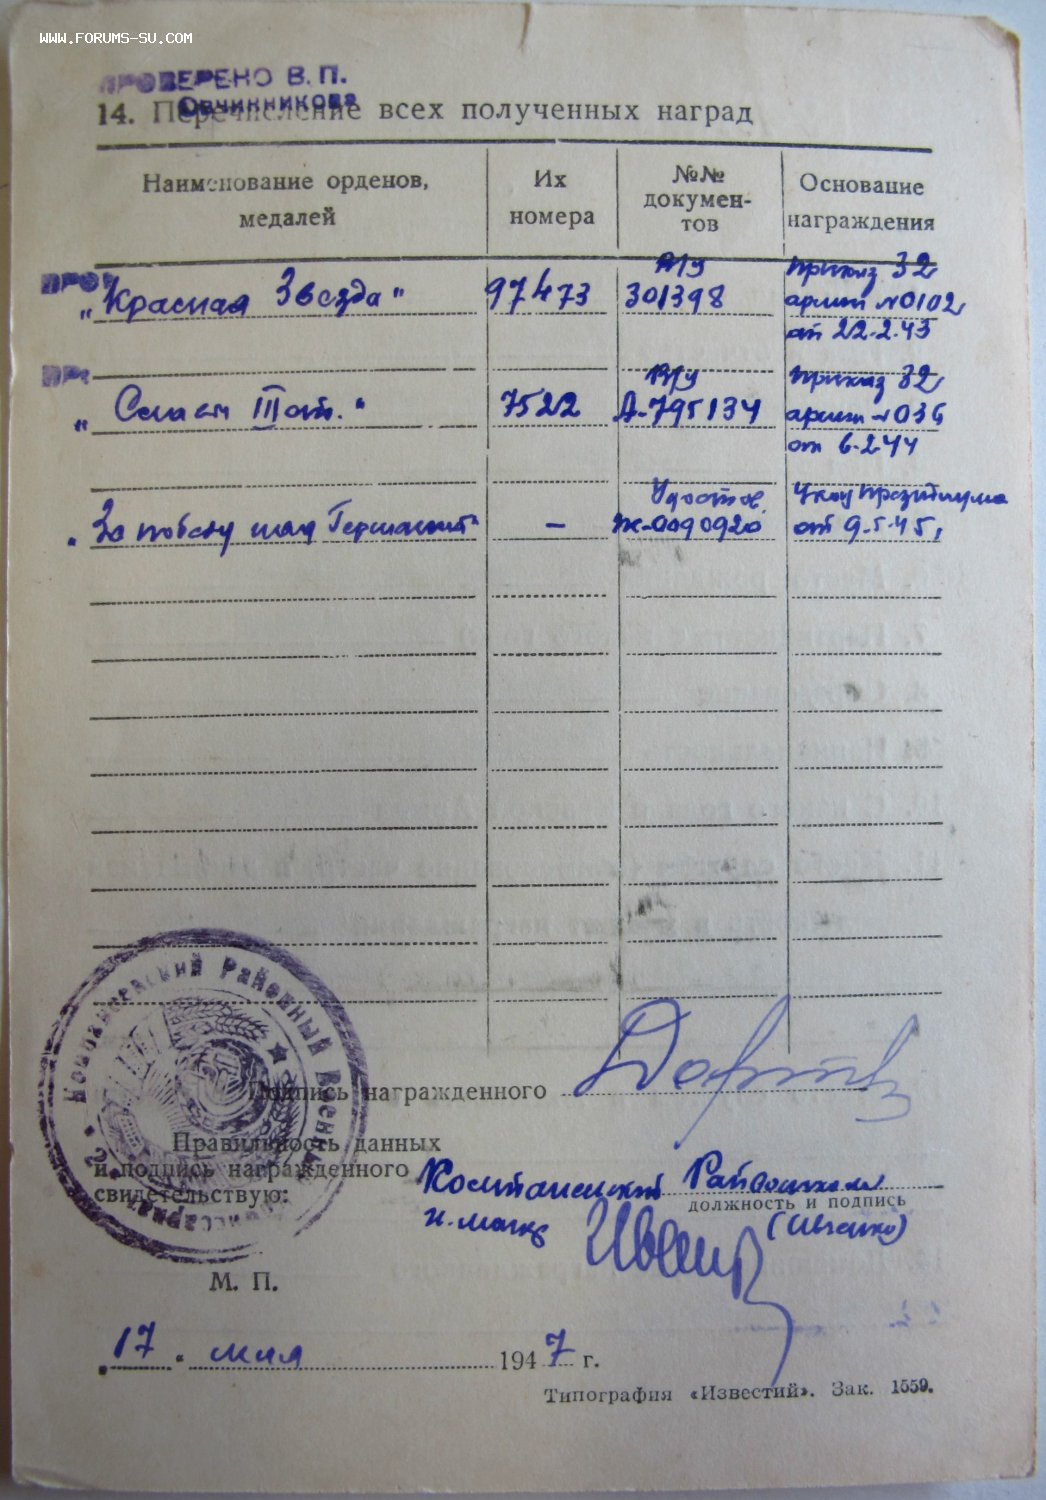 WWW.FORUMS-SU.COM
ПРОВЕРЕНО В.П.
Овчинникова
14. Перечисление всех полученных наград
Наименование орденов, медалей
Их номера
№№ докумен-тов
Основание награждения
В/У приказ 32
„Красная Звезда" 97473 301398 армии №0102
от 22.2.43
В/У приказ 32
„Слава III ст." 7522 А-795134 армии №036
от 6.2.44
Удостов. Указ Президиума
„За победу над Германией" — Ж-0090920 от 9.5.45,
Районный Военный
Подпись награжденного
Правильность данных
и подпись награжденного
свидетельствую:
Райвоенком
должность и подпись
(Ивченко)
М. П.
17 мая 1947 г.
Типография «Известий». Зак. 1559.